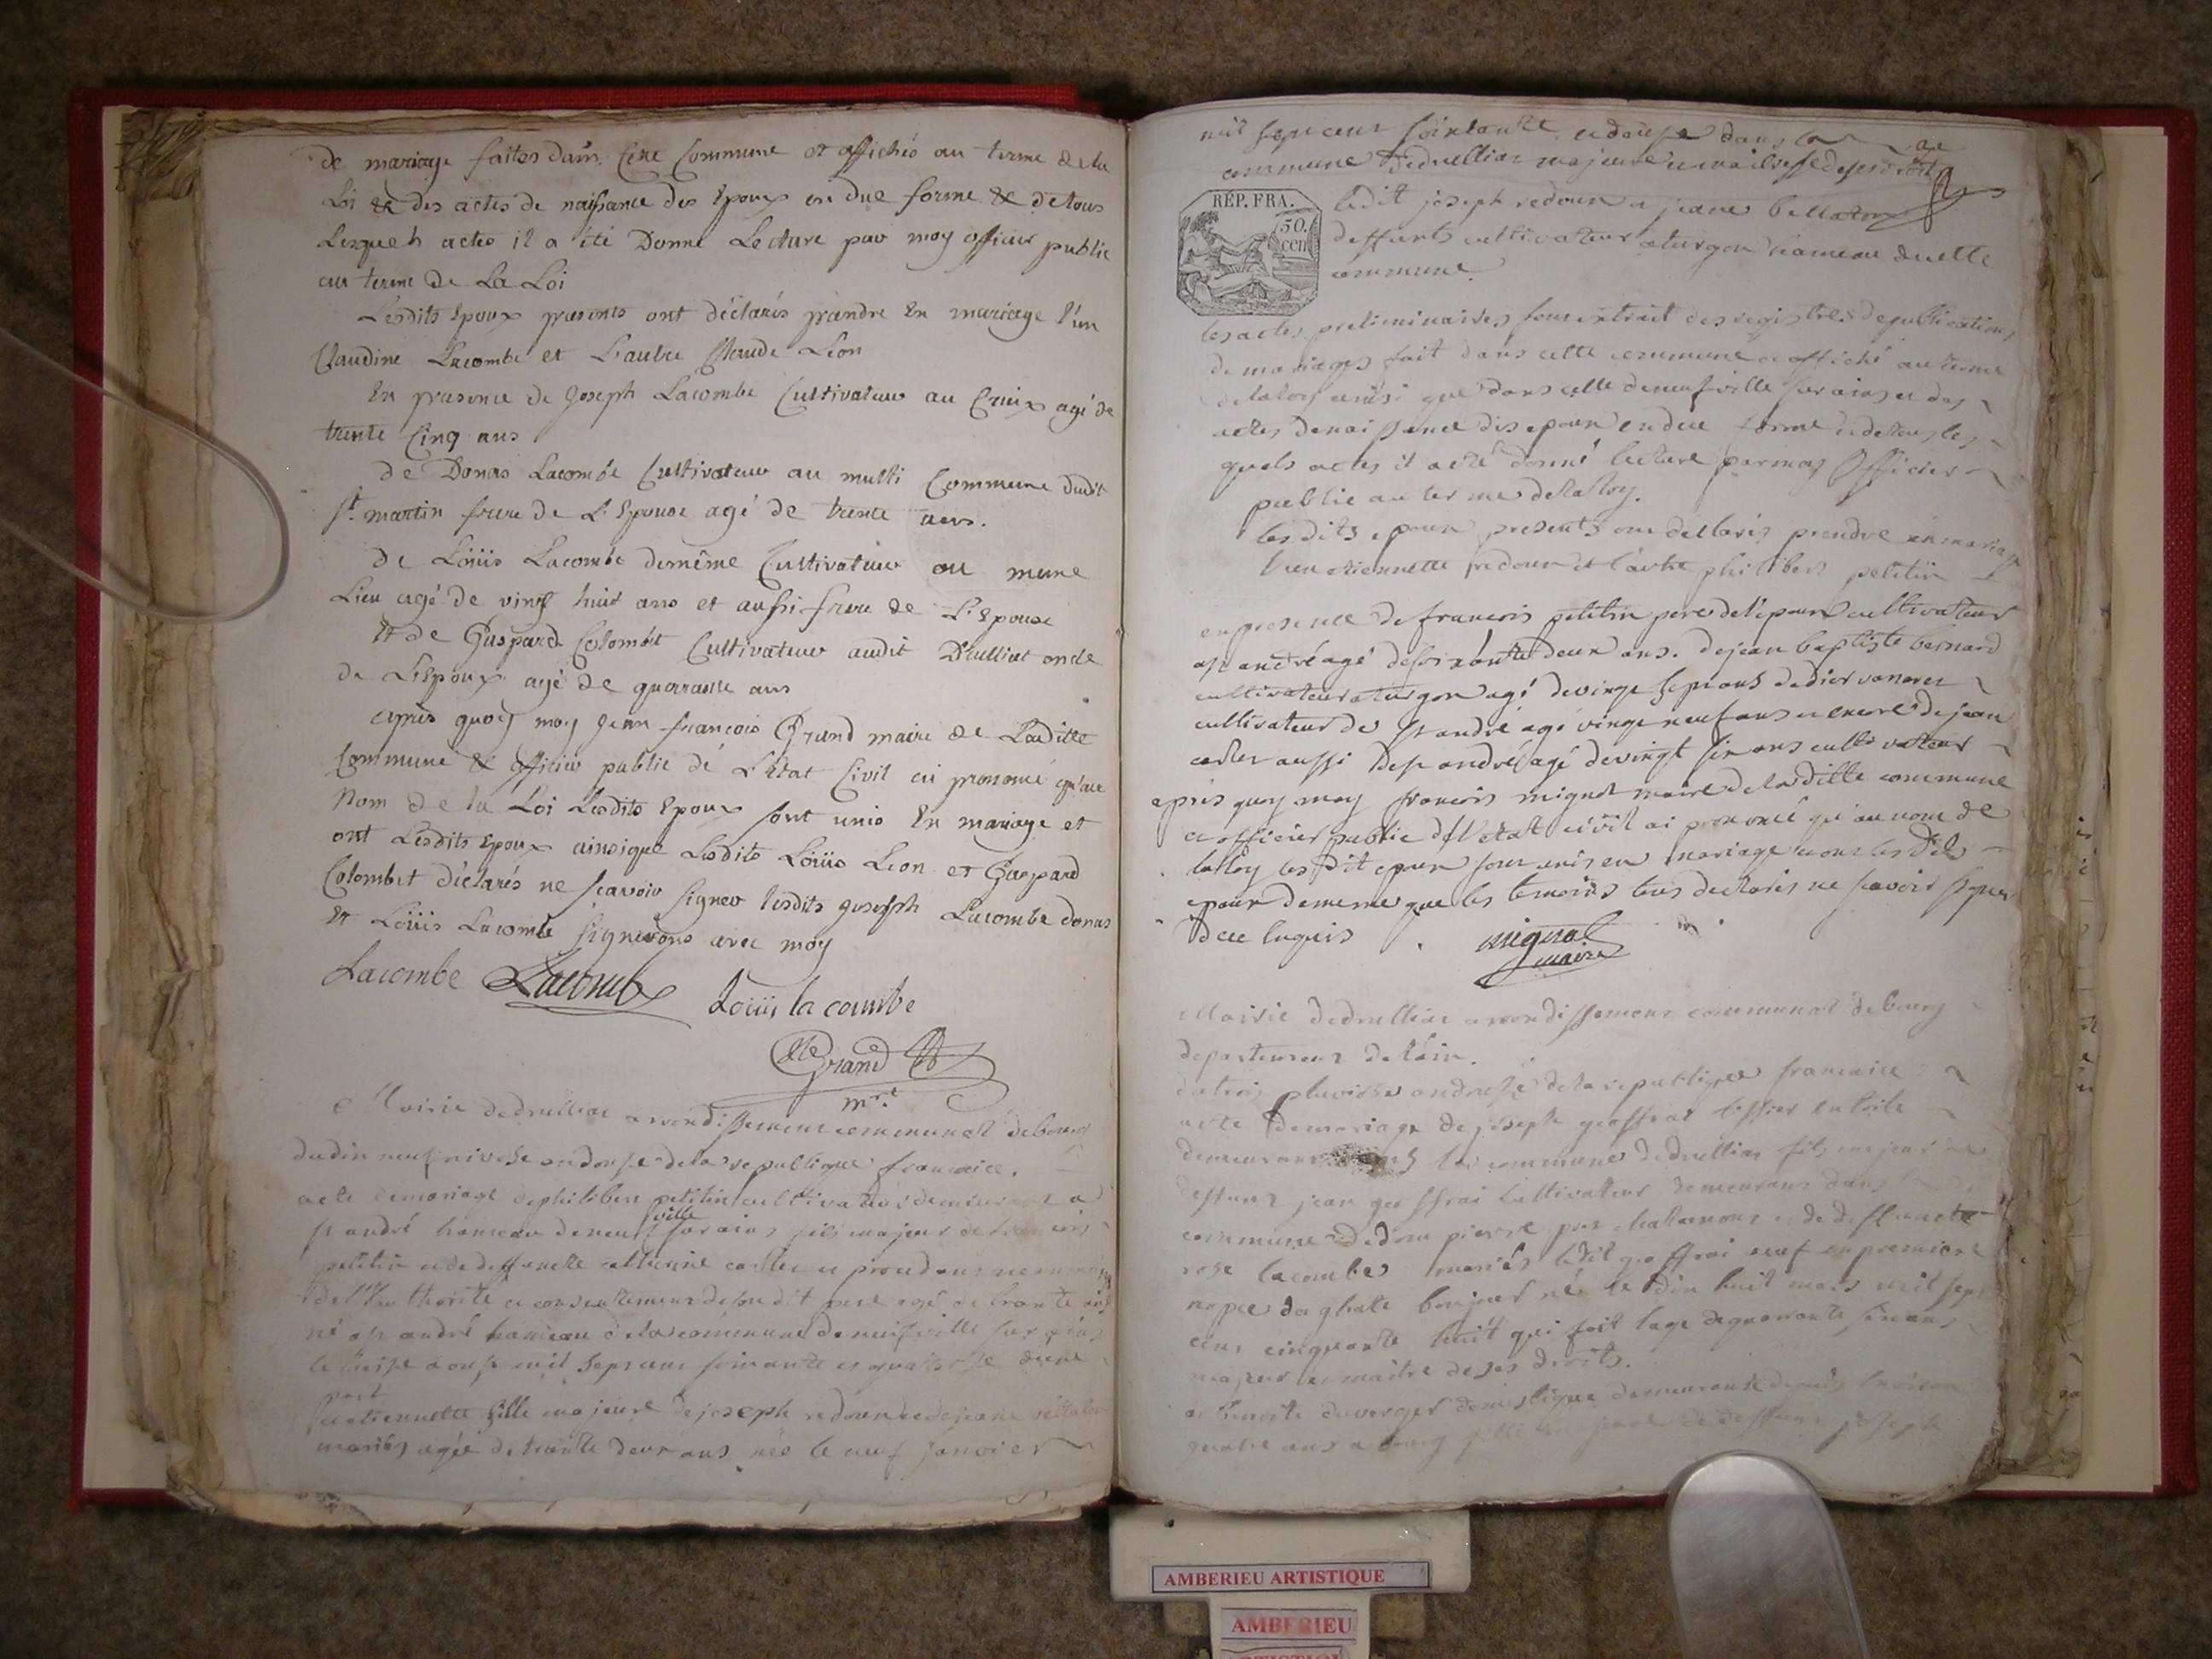 de mariage faites dans Cette Commune et affichés au terme de la
Loi & des actes de naissance des Epoux en due forme & de tous
Lesquels actes il a été Donné Lecture par moy officier public
au terme de La Loi
Lesdits Epoux presents ont déclarés prandre En mariage l'un
Claudine Lacombe et L'autre Claude Léon
En presence de Joseph Lacombe Cultivateur au Cruix agé de
trente Cinq ans
de Donas Lacombe Cultivateur au multi Commune dudit
st. martin frere de L'Epouse agé de trente ans.
de Loüis Lacombe demême Cultivateur au meme
Lieu agé de vingt huit ans et aussi frere de L'Epouse
Et de Gaspard Colombet Cultivateur audit Druilliat oncle
de L'Epoux agé de quarante ans
après quoy moy Jean françois Grand maire de Laditte
Commune & officier public de L'état Civil ai prononcé qu'au
Nom de la Loi Lesdits Epoux sont unis En mariage et
ont Lesdits Epoux ainsique Lesdits Loüis Leon et Gaspard
Colombet déclarés ne scavoir signer lesdits joseph Lacombe donas
Et Loüis Lacombe signerons avec moy
Lacombe Lacombe Loüis la coumbe
Grand
mre
Mairie dedruilliat arrondissement communal debourg
du dix neuf nivose an douse dela republique francaice.
acte demariage dephilibert petitin cultivateur demeurant a
st andré hameau deneuf ville sur ains fils majeur de francois
petitin et de deffuncte catherine carlet
de l'authorité et consentement de son dit pere agé de trante ans
né a st andré hameau dela commune de neufville sur ains
le mil sept cent soixante et quatorse d'une
part
Et etiennette fille majeure de joseph redoux et de jeane bellaton
mariés agée de trante deux ans née le neuf janvier
mil sept cent soixante et douse dans la
commune dedruillias majeure et maitresse de ses droits
RÉP. FRA.
50. cen
ledit joseph redoux a jeane bellaton
deffunts cultivateur a turgon hameau de cette
commune.
les actes preliminaires sont extrait des registres de publications
de mariages fait dans cette commune et affiché au terme
delaloy ainsi que dans celle deneufville sur ains et des
actes denaissance des epoux en due forme et detous les
quels actes il a eté donné lecture par moy Officier
public au terme delaloy.
les dits epoux presents ont declarés prendre en mariage
l'un etiennette redoux et l'autre philibert petitin
en presence de francois petitin pere de l'epoux cultivateur
a st andré agé de soixante deux ans. de jean baptiste bernard
cultivateur a turgon agé de vingt sept ans de didier vanarez
cultivateur de st andré agé vingt neuf ans et encore de jean
carlet aussi de st andré agé de vingt six ans cultivateur
apris quoy moy francois mignot maire de laditte commune
et officier public de l'etat civil ai prononcé qu'au nom de
laloy les dit epoux sont unis en mariage et ont les dits
epoux de meme que les temoins tous declarés ne scavoir signer
de ce enquis
mignot
maire
Mairie dedruillias arrondissement communal debourg
departement de l'ain.
du trois pluviose an douse dela republique francaice
acte demariage de joseph geoffrai tissier en toile
demeurant dans la commune dedruillias fils majeur de
deffunt jean geoffrai cultivateur demeurant dans la
commune de dom pierre pres chalamont et de deffuncte
rose lacombe mariés ledit geoffrai veuf en premiere
nopce daghate bonjour né le dix huit mars mil sept
cent cinquante huit qui fait lage de quarante six ans
majeur et maitre de ses droits.
et benoite duverger domestique demeurante depuis environ
quatre ans a bourg fille de deffunt joseph
AMBERIEU ARTISTIQUE
AMBERIEU